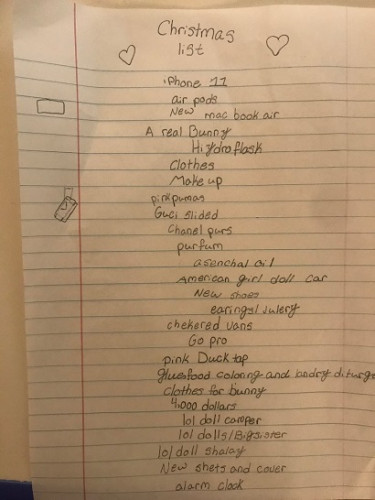 Christmas
list
iPhone 11
air pods
New mac book air
A real Bunny
Hidroflask
Clothes
Make up
pink pumas
Guci slided
Chanel purs
purfum
asenchal oil
American girl doll car
New shoes
earings/Julery
chekered vans
Go pro
pink Duck tap
glue food coloring and
clothes for bunny
4,000 dollars
lol doll camper
lol dolls/Bigsister
lol doll shalay
New shets and cover
alarm clock